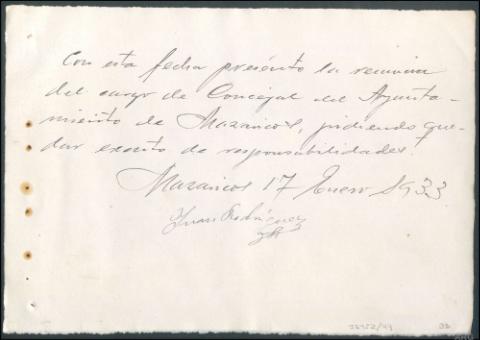 Con esta fecha presento la renuncia
del cargo de Concejal del Ayunta-
miento de Mazaricos, pidiendo que-
dar exento de responsabilidades.
Mazaricos 17 Enero 1933
Juan Rodríguez